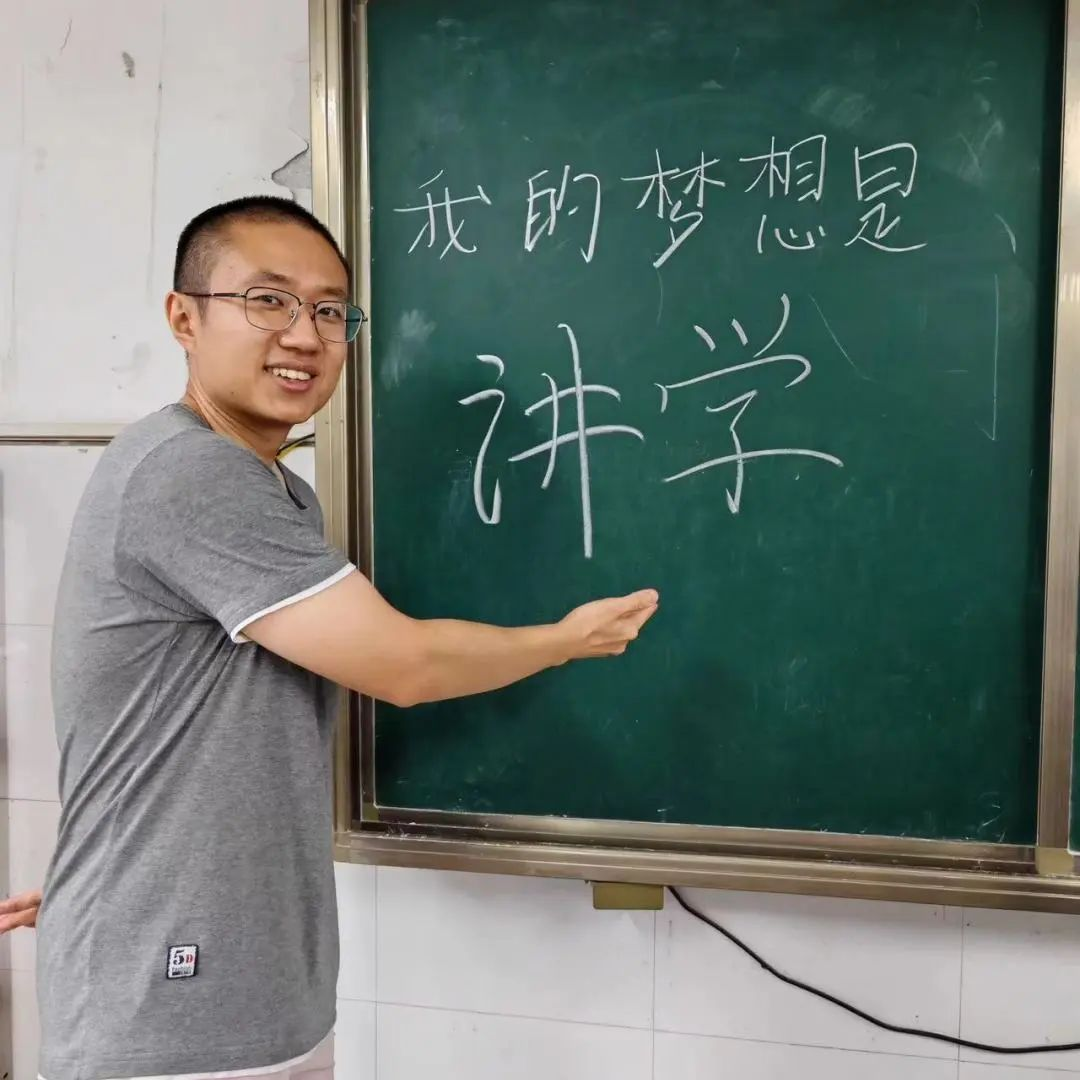 我的梦想是
讲学
5D